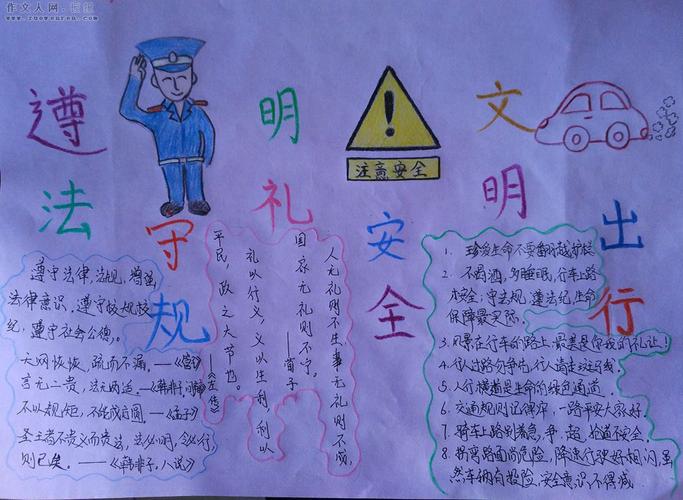 作文人网·振红
www.zuowenren.com
遵法守规
明礼安全
文明出行
注意安全
遵守法律,法规,增强
法律意识,遵守校规校
纪,遵守社会公德。
天网恢恢,疏而不漏。——《老子》
言无二贵,法无两适。——《韩非子·问辩》
不以规矩,不能成方圆。——《孟子》
圣王者不贵义而贵法,法必明,令必行
则已矣。——《韩非子,八说》
人无礼则不生,事无礼则不成,
国家无礼则不宁。
——荀子
礼以行义,义以生利,利以
平民,政之大节也。
——《左传》
1. 珍爱生命不要翻越护栏
2. 不喝酒,多睡眠,行车上路
求安全;守法规,遵法纪,生命
保障最实际。
3. 风景在行车的路上,最美是你我的礼让!
4. 行人出路勿争也,行人请走斑马线。
5. 人行横道是生命的绿色通道。
6. 交通规则记得牢,一路平安大家好。
7. 骑车上路别着急,争、超、抢道不安全。
8. 拐弯路面尚危险,降速行驶好相闪,虽
然车辆有投险,安全意识不得减。